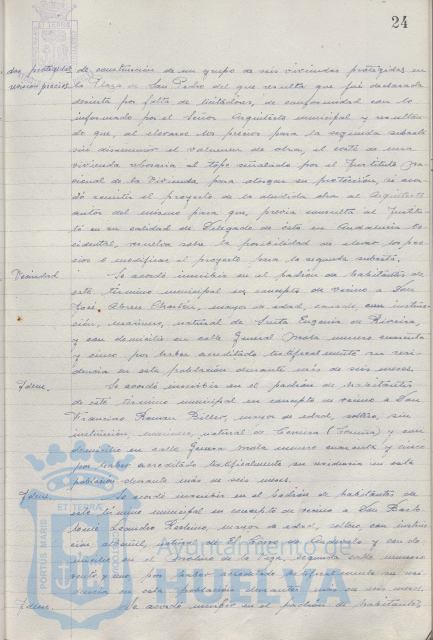 24
das protegidas de construcción de un grupo de seis viviendas protegidas en
revisión precios la Plaza de San Pedro del que resulta que fué declarada
desierta por falta de licitadores, de conformidad con lo
informado por el Señor Arquitecto municipal y resultan-
do que, al elevarse los precios para la segunda subasta
sin disminuir el volumen de obra, el coste de una
vivienda rebasaria el tope señalado por el Instituto Na-
cional de la Vivienda para otorgar su protección, se acor-
dó remitir el proyecto de la aludida obra al Arquitecto
autor del mismo para que, previa consulta al Institu-
to en su calidad de Delegado de éste en Andalucia Oc-
cidental, resuelva sobre la posibilidad de elevar los pre-
cios o modificar el proyecto para la segunda subasta.
Vecindad Se acordó inscribir en el padrón de habitantes de
este término municipal en concepto de vecino a Don
José mayor de edad, casado, con instruc-
ción, marinero, natural de Santa Eugenia de Riveira,
y con domicilio en calle General Mola número cuarenta
y cinco por haber acreditado testificalmente su resi-
dencia en esta población durante más de seis meses.
Idem. Se acordó inscribir en el padrón de habitantes
de este término municipal en concepto de vecino a Don
Francisco Roman mayor de edad, soltero, sin
instrucción, marinero, natural de y con
domicilio en calle General Mola número cuarenta y cinco
por haber acreditado testificalmente su residencia en esta
población durante más de seis meses.
Idem. Se acordó inscribir en el padrón de habitantes de
este término municipal en concepto de vecino a Don Barto-
lomé Leandro mayor de edad, soltero, con instruc-
ción, albañil, natural de El Cerro de Andévalo y con do-
micilio en el de la Vega, segunda calle número
veinte y uno, por haber acreditado testificalmente su resi-
dencia en esta población durante más de seis meses.
Idem. Se acordó inscribir en el padrón de habitantes
PORTUS MARIS ET TERRÆ CUSTODIA
Ayuntamiento de
HUELVA